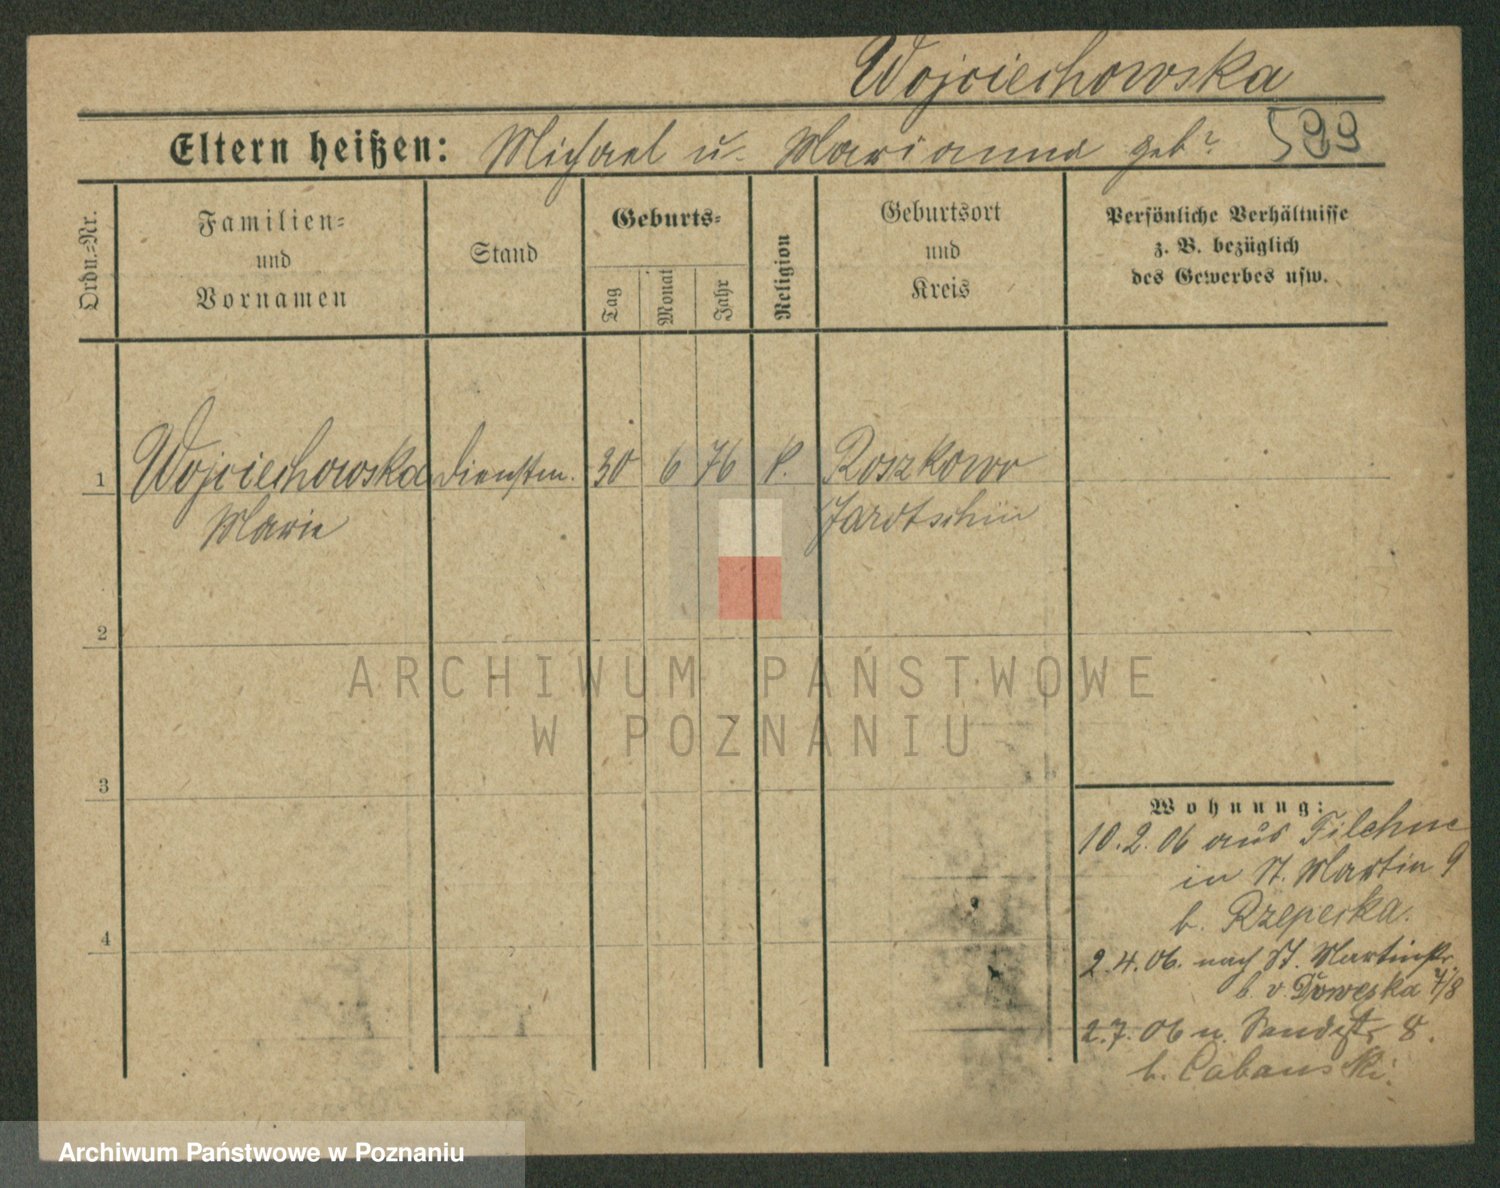 Wojciechowska
Eltern heißen: Michael u. Marianna geb.
Ordn.-Nr.
Familien-
und
Vornamen
Stand
Geburts-
Tag
Monat
Jahr
Religion
Geburtsort
und
Kreis
Persönliche Verhältnisse
z. B. bezüglich
des Gewerbes usw.
1 Wojciechowska Dienstm. 30 6 76 k. Roszkowo
Marie Jarotschin
2
ARCHIWUM PAŃSTWOWE
W POZNANIU
3
Wohnung:
10.2.06 aus Filehne
in St. Martin 9
b. Rzepecka.
4
2.4.06. nach St. Martinstr.
b. v. 7/8
2.7.06 n. 8.
b. Cabanski.
Archiwum Państwowe w Poznaniu